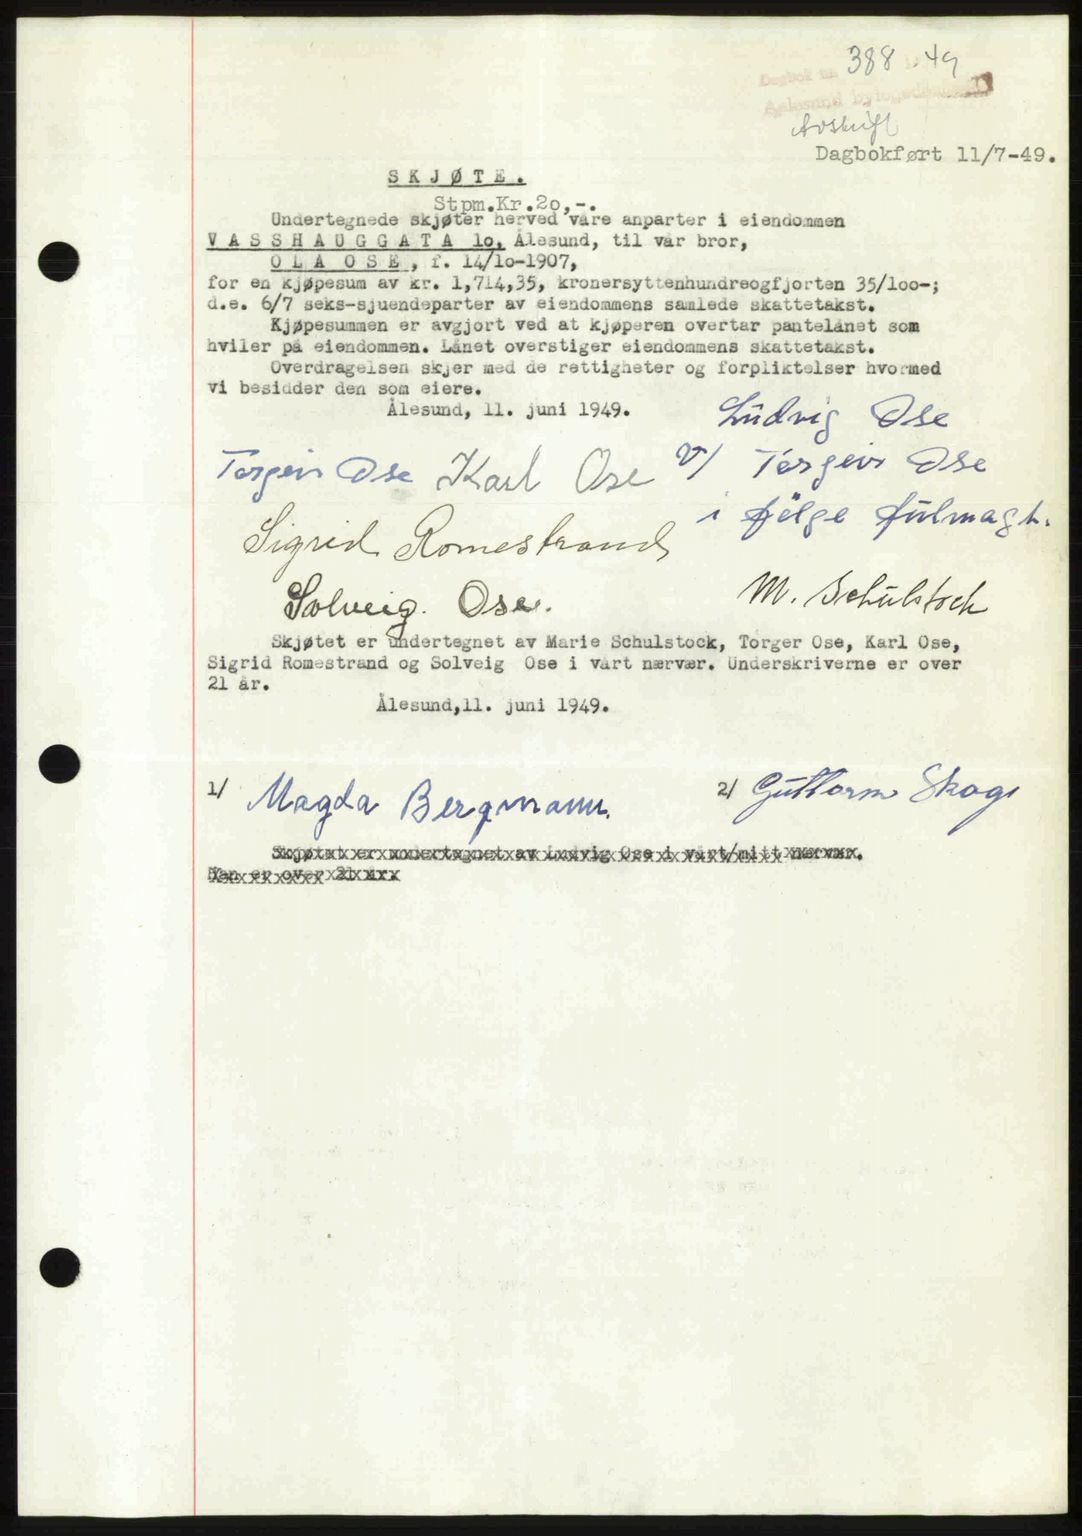 388 . 49
Dagbok nr.
Aalesund byfogdembede
Avskrift
Dagbokført 11/7-49.
SKJØTE.
Stpm.Kr.2o,-.
Undertegnede skjøter herved våre anparter i eiendommen
VASSHAUGGATA 1o, Ålesund, til vår bror,
OLA OSE, f. 14/1o-1907,
for en kjøpesum av kr. 1,714,35, kronersyttenhundreogfjorten 35/1oo-;
d.e. 6/7 seks-sjuendeparter av eiendommens samlede skattetakst.
Kjøpesummen er avgjort ved at kjøperen overtar pantelånet som
hviler på eiendommen. Lånet overstiger eiendommens skattetakst.
Overdragelsen skjer med de rettigheter og forpliktelser hvormed
vi besidder den som eiere.
Ålesund, 11. juni 1949.
Ludvig Ose
Torgeir Ose Karl Ose v/ Torgeir Ose
i følge fulmagt.
Sigrid Romestrand
Solveig. Ose.
M. Schulstock
Skjøtet er undertegnet av Marie Schulstock, Torger Ose, Karl Ose,
Sigrid Romestrand og Solveig Ose i vårt nærvær. Underskriverne er over
21 år.
Ålesund,11. juni 1949.
1/ Magda Bergmann.
2/ Guttorm Skogs
Skjøtet er undertegnet av Ludvig Ose i vårt/mitt nærvær.
Han er over 21 år.